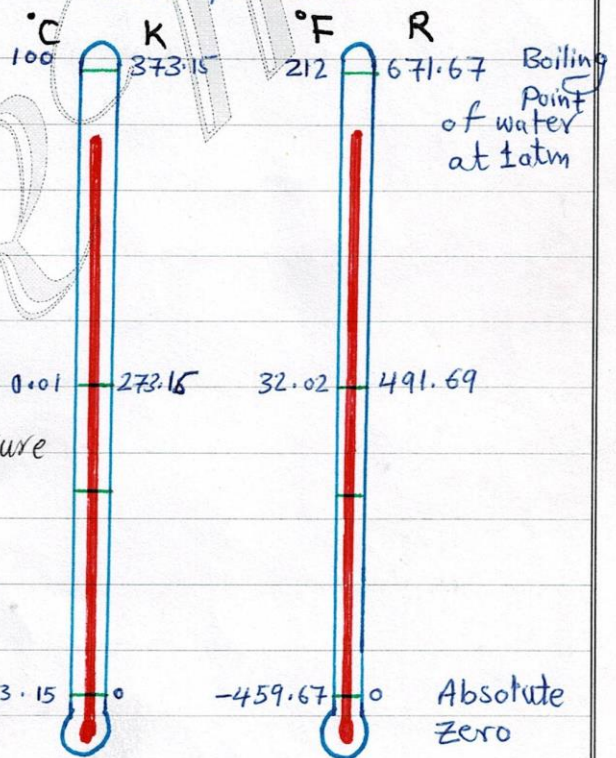 °C K °F R
100 373.15 212 671.67 Boiling
Point
of water
at 1atm
0.01 273.15 32.02 491.69
ure
3.15 0 -459.67 0 Absolute
Zero